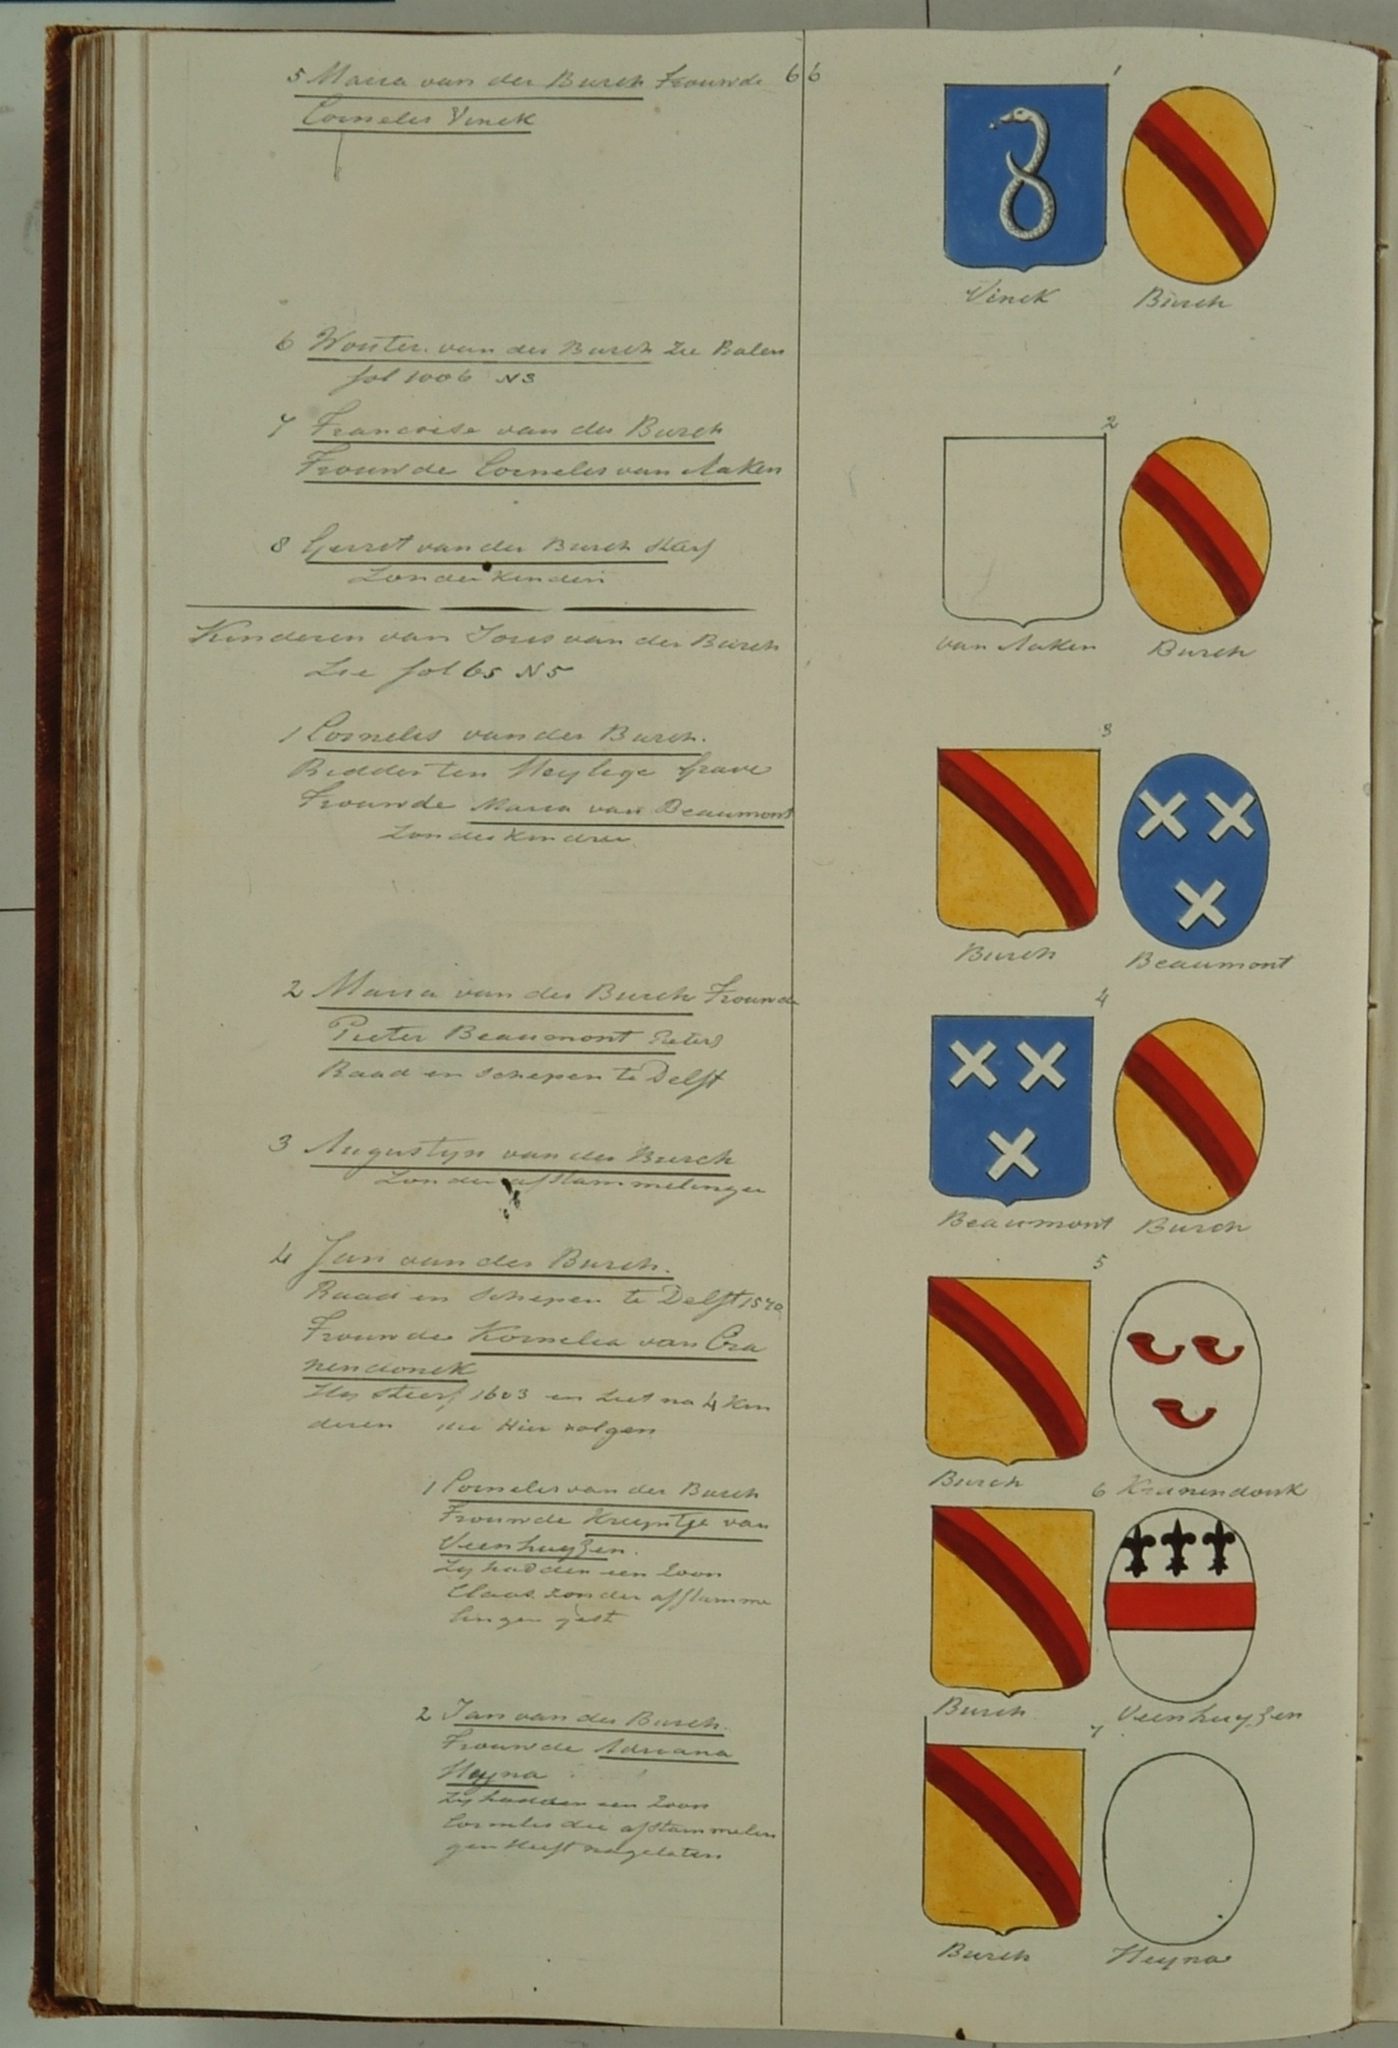 66
5 Maria van der Burch Trouwde
Cornelis Vinck
6 Wouter van der Burch Zie Balen
fol 1006 N3
7 Francoise van der Burch
Trouwde Cornelis van Aaken
8 Gerret van der Burch sterf
Zonder Kinderen
Kinderen van Joris van der Burch
Zie fol 65 N5
1 Cornelis van der Burch.
Ridder ten Heylige Grave
Trouwde Maria van Beaumont
Zonder Kinderen
2 Maria van der Burch Trouwde
Pieter Beaumont Pieters
Raad en schepen te Delft
3 Augustyn van der Burch
Zonder afstammelingen
4 Jan van der Burch.
Raad en Schepen te Delft
Trouwde Kornelia van Cra
nendonck
Hy sterf 1603 en Liet na 4 Kin
deren die Hier volgen
1 Cornelis van der Burch
Trouwde Kruyntje van
Veenhuyzen.
Zy hadden een Zoon
Claas zonder afstamme
lingen
2 Jan van der Burch.
Trouwde Adriana
Heyna
Zy hadden een Zoon
Cornelis die afstammelin
gen Heeft nagelaten
1
Vinck Burch
2
van Aaken Burch
3
Burch Beaumont
4
Beaumont Burch
5
Burch Kranendonk
6
Burch Veenhuyzen
7
Burch Heyna